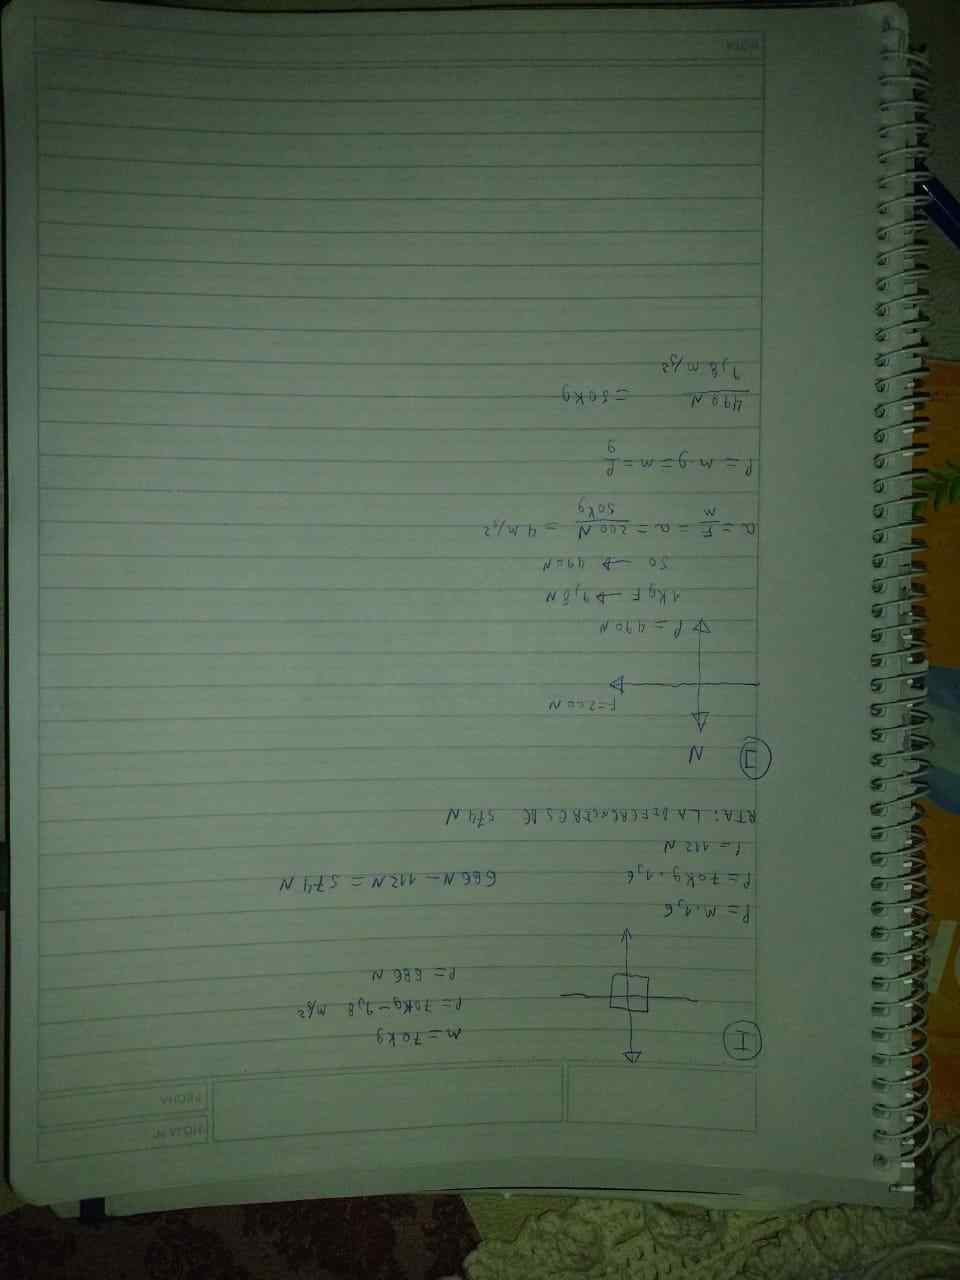 HOJA Nº
FECHA
I
m = 70kg
P = 70kg - 9,8 m/s²
P = 686 N
P = m . 1,6
P = 70kg . 1,6
686N - 112N = 574N
P = 112 N
RTA: LA DIFERENCIA ES DE 574 N
II
N
F=200N
P = 490N
1KgF → 9,8N
50 → 490N
a = F/m = a = 200 N/50kg = 4 m/s²
P = m . g = m = P/g
490 N/9,8 m/s² = 50kg
NOTA